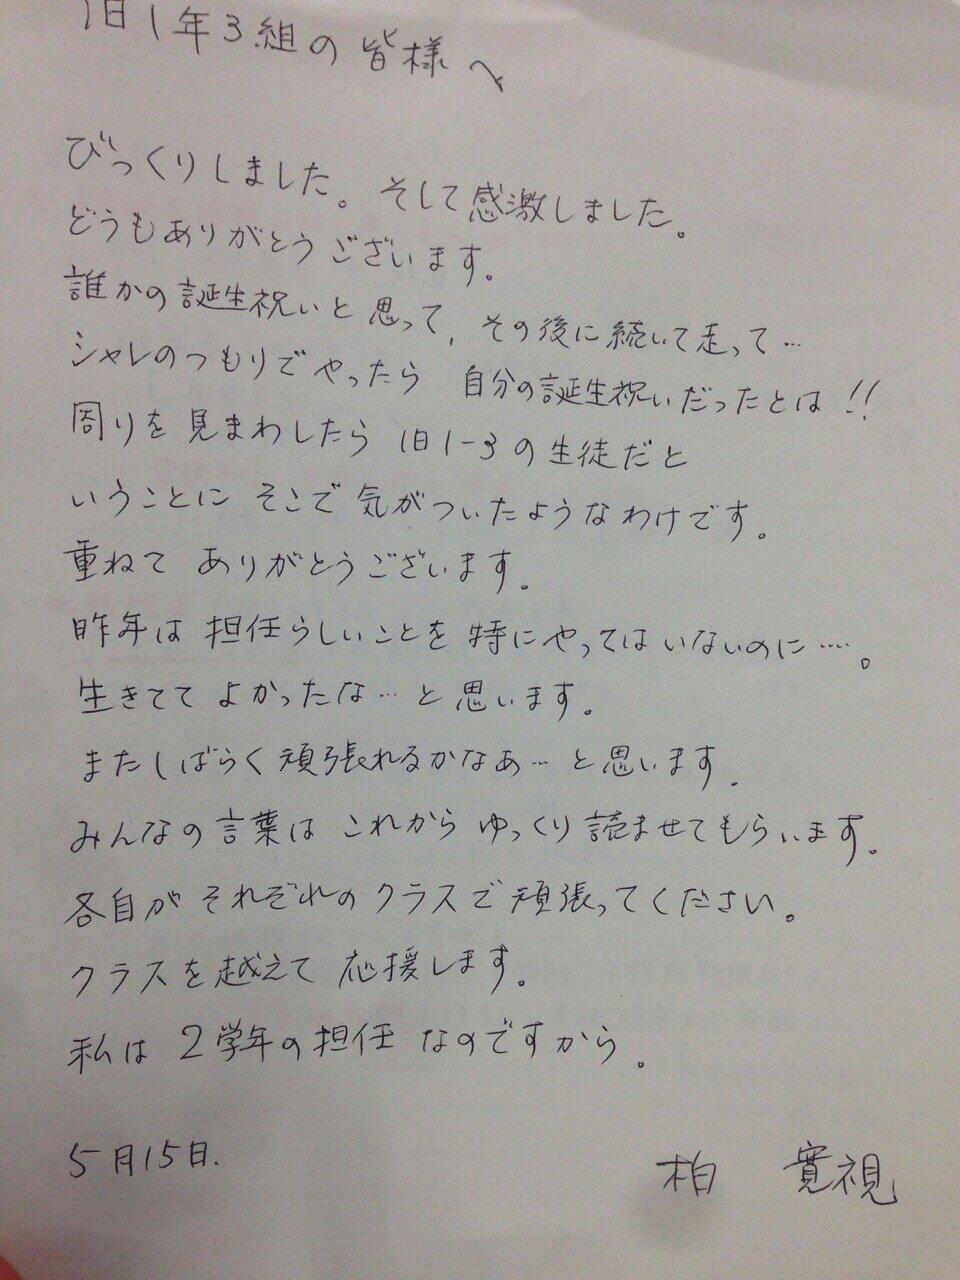 旧1年3組の皆様へ
びっくりしました。そして感激しました。
どうもありがとうございます。
誰かの誕生祝いと思って、その後に続いて走って…
シャレのつもりでやったら 自分の誕生祝いだったとは!!
周りを見まわしたら 旧1-3の生徒だと
いうことに そこで気がついたようなわけです。
重ねて ありがとうございます。
昨年は 担任らしいことを 特にやってはいないのに‥‥。
生きてて よかったな…と思います。
またしばらく頑張れるかなぁ…と思います.
みんなの言葉は これから ゆっくり読ませてもらいます。
各自が それぞれのクラスで頑張ってください。
クラスを越えて 応援します。
私は 2学年の担任 なのですから。
5月15日.
柏 寛視